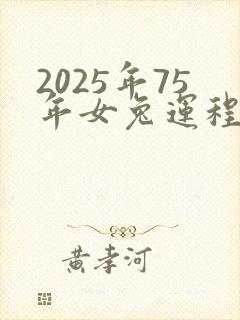 2025年75
年女兔運程
黄孝河